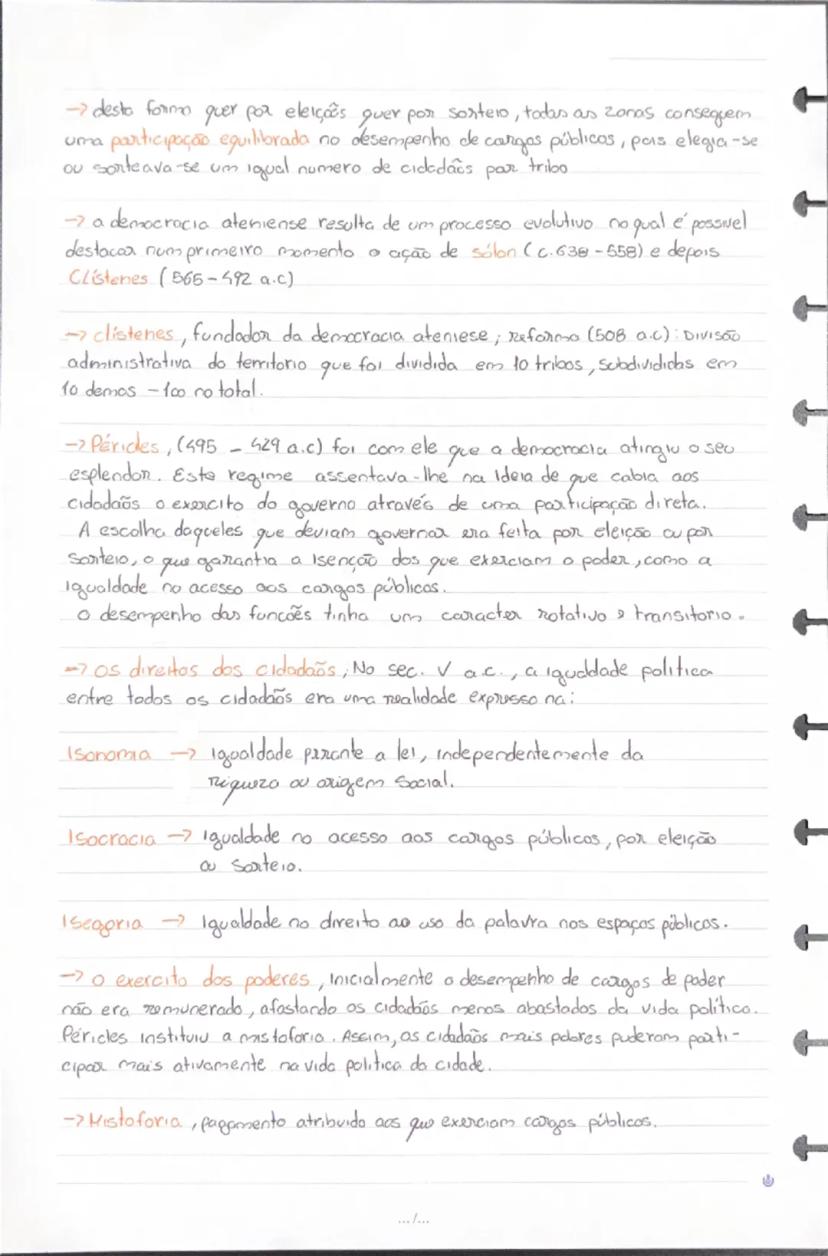 → desta forma quer por eleições quer por sorteio, todas as zonas conseguem
uma participação equilibrada no desempenho de cargos públicos, pois elegia-se
ou sorteava-se um igual numero de cidadãos por tribo
→ a democracia ateniense resulta de um processo evolutivo no qual é possivel
destacar num primeiro momento a ação de sólon (c.638-558) e depois
Clístenes (565-492 a.c)
→ clístenes, fundador da democracia ateniese; reforma (508 a.c): Divisão
administrativa do territorio que foi dividida em 10 tribos, subdivididas em
10 demos - 100 no total.
→ Péricles, (495 - 429 a.c) foi com ele que a democracia atingiu o seu
esplendor. Este regime assentava-lhe na ideia de que cabia aos
cidadãos o exercito do governo através de uma participação direta.
A escolha daqueles que deviam governar era feita por eleição ou por
sorteio, o que garantia a isenção dos que exerciam o poder, como a
igualdade no acesso aos cargos públicos.
O desempenho das funcões tinha um caracter rotativo e transitorio.
→ os direitos dos cidadãos; No sec. V a.c., a igualdade politica
entre todos os cidadãos era uma realidade expressa na:
Isonomia → igualdade perante a lei, independentemente da
riqueza ou origem social.
Isocracia → igualdade no acesso aos cargos públicos, por eleição
ou sorteio.
Isegoria → igualdade no direito ao uso da palavra nos espaços públicos.
→ o exercito dos poderes, inicialmente o desempenho de cargos de poder
não era remunerado, afastando os cidadãos menos abastados da vida política.
Péricles instituiu a mistoforia. Assim, os cidadãos mais pobres puderam parti-
cipar mais ativamente na vida politica da cidade.
→ Mistoforia, pagamento atribuido aos que exerciam cargos públicos.
.../...